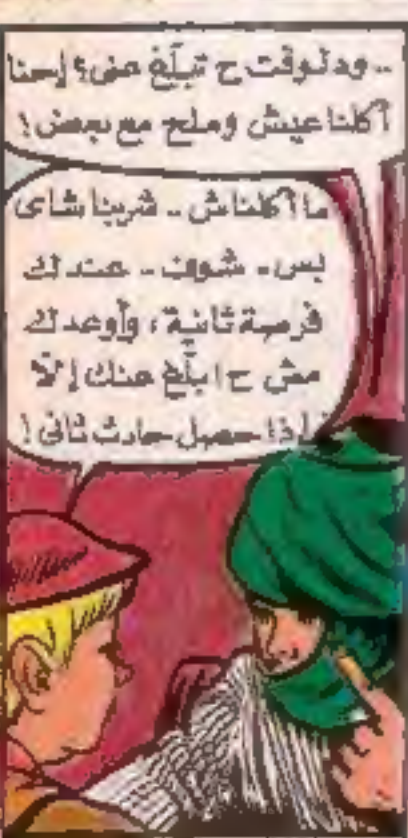 .. ودلوقت ح تبلّغ عنى؟ إحنا
أكلنا عيش وملح مع بعض!
ما أكلناش .. شربنا شاى
بس .. شوف .. عندك
فرصة ثانية، وأوعدك
مش ح ابلّغ عنك إلاّ
إذا حصل حادث ثانى!